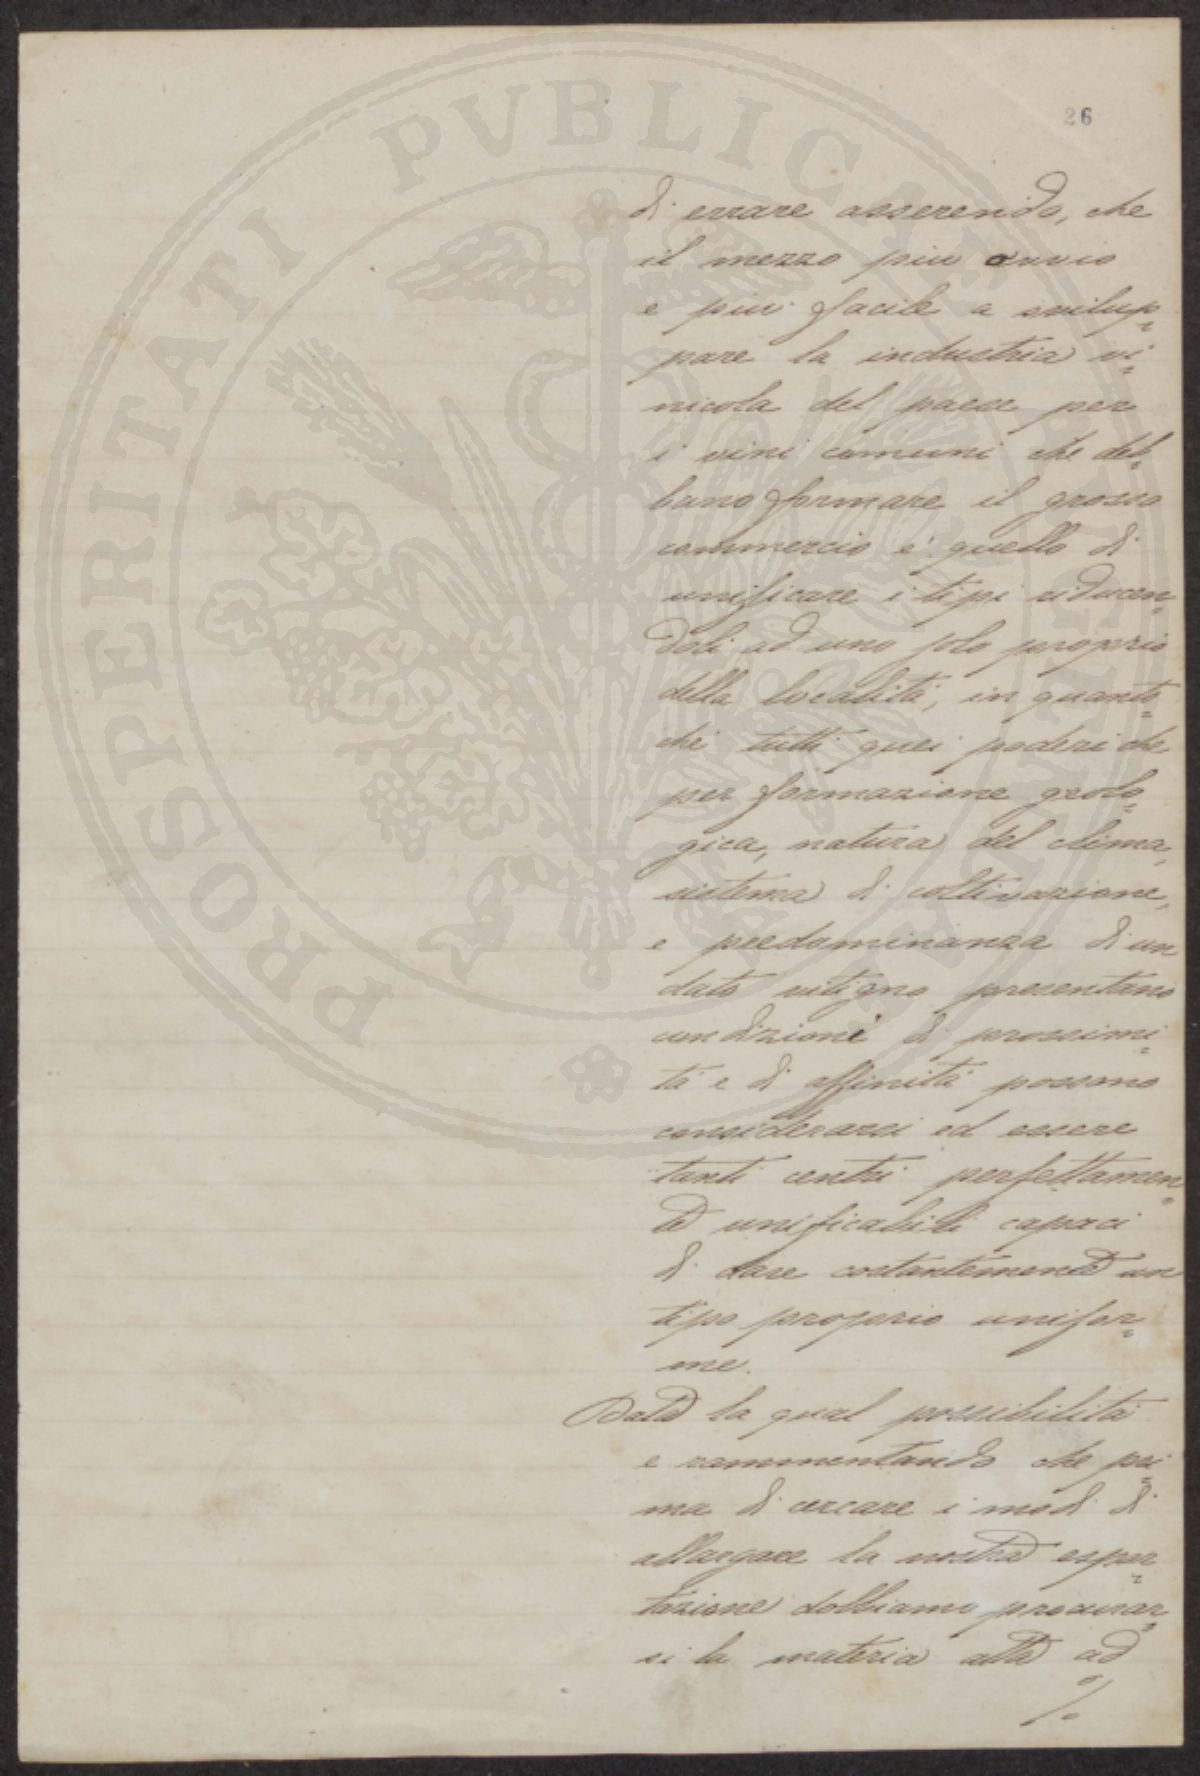 26
di errare asserendo, che
il mezzo piu ovvio
e piu facile a svilup=
pare la industria vi=
nicola del paese per
i vini comuni che deb=
bano formare il grosso
commercio e' quello di
unificare i tipi riducen=
doli ad uno solo proprio
della localitá, in quanto=
ché tutti quei poderi che
per formazione geolo=
gica, natura del clima,
sistema di coltivazione,
e predominanza di un
dato vitigno presentano
condizioni di prossimi=
tá e di affinitá possono
considerarsi ed essere
tanti centri perfettamen=
te unificabili capaci
di dare costantemente un
tipo proprio unifor=
me.
Data la qual possibilitá
e rammentando che pri=
ma di cercare i modi di
allargare la nostra espor=
tazione dobbiamo procurar=
si la materia atta ad
%
PROSPERITATI PVBLICAE